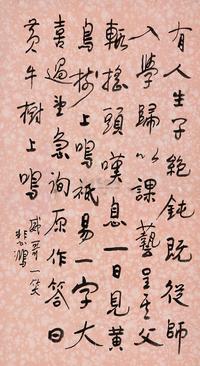 有人生子絶鈍既從師
入學歸以課藝呈其父
輒搖頭嘆息一日見黃
鳥樹上鳴祗易一字大
喜過望急詢原作答曰
黃牛樹上鳴
哥一笑
悲鴻